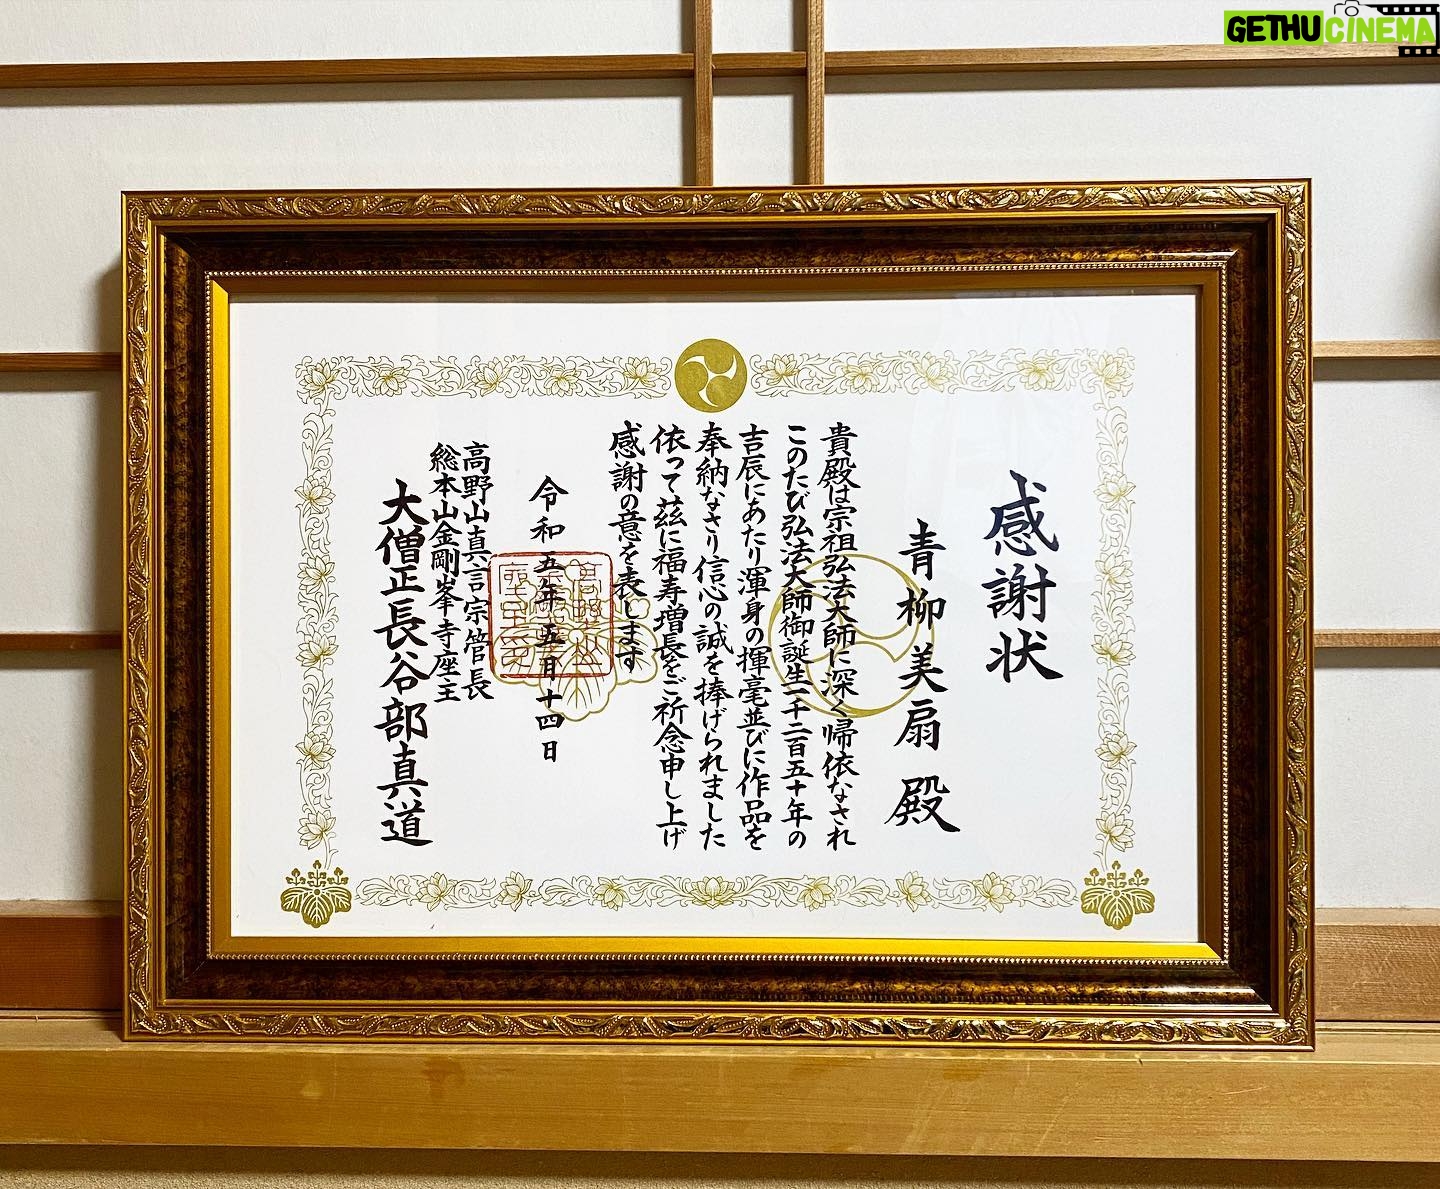 感謝状
青柳美扇 殿
貴殿は宗祖弘法大師に深く帰依なされ
このたび弘法大師御誕生一千二百五十年の
吉辰にあたり渾身の揮毫並びに作品を
奉納なさり信心の誠を捧げられました
依って茲に福寿増長をご祈念申し上げ
感謝の意を表します
令和五年五月十四日
高野山真言宗管長
総本山金剛峯寺座主
大僧正長谷部真道
GETHUCINEMA